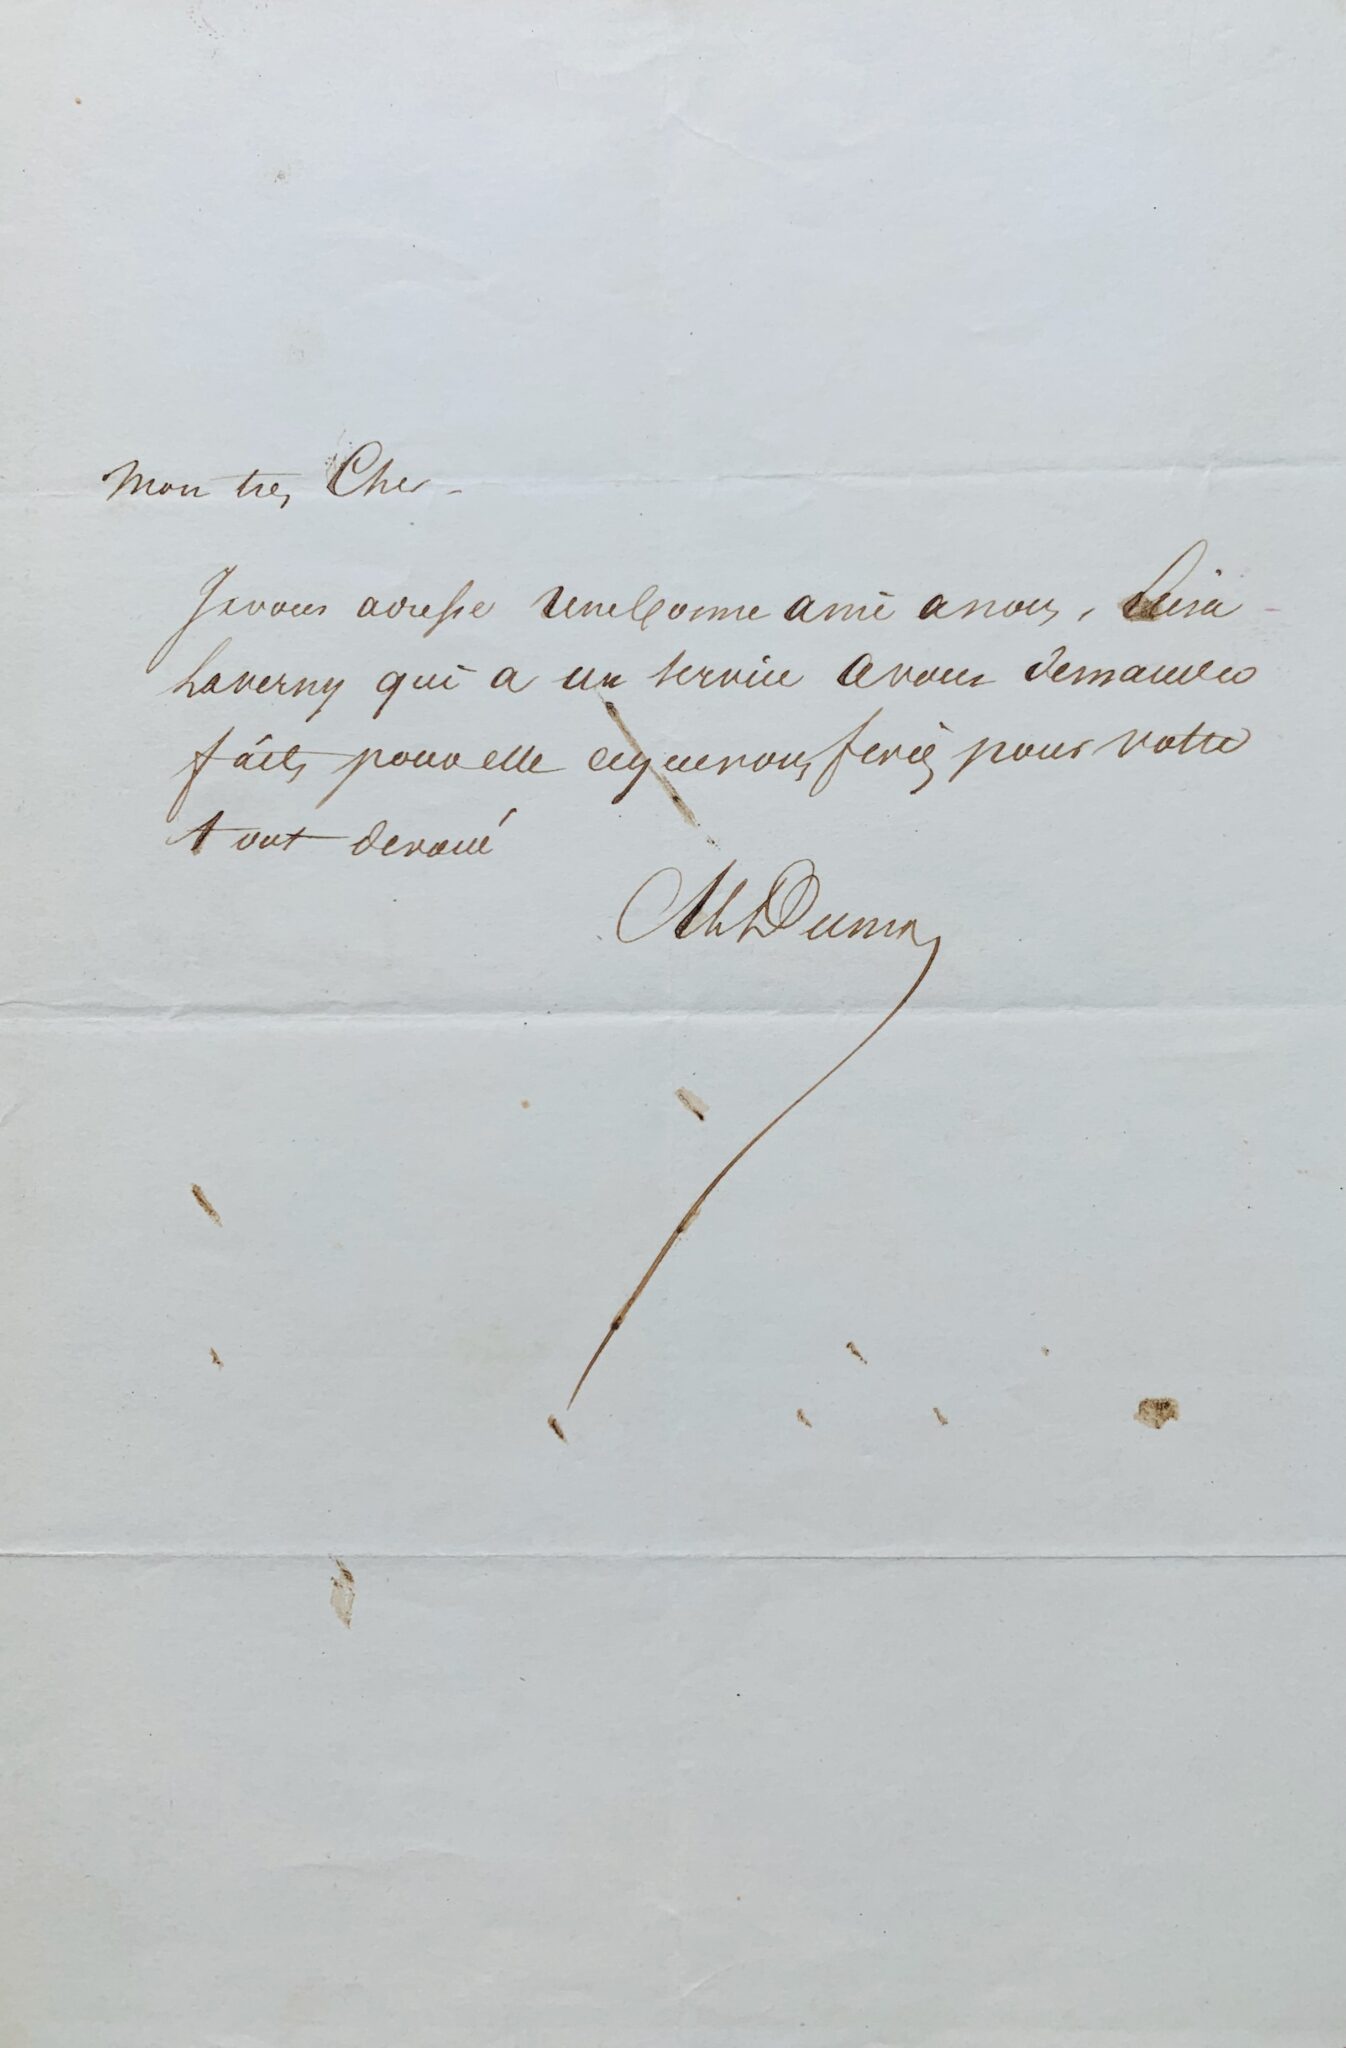 Mon tres Cher -
Je vous adresse une bonne amie a nous, Lisa
Laverny qui a un service a vous demander
faites pour elle ce que vous feriez pour votre
tout devoué
Alex Dumas